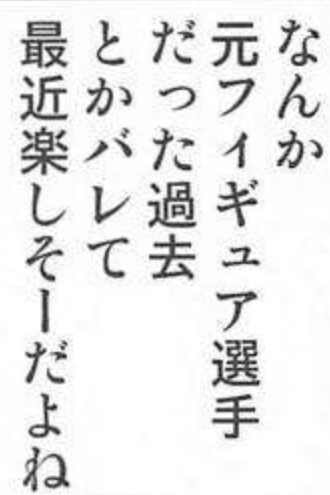 なんか
元フィギュア選手
だった過去
とかバレて
最近楽しそーだよね